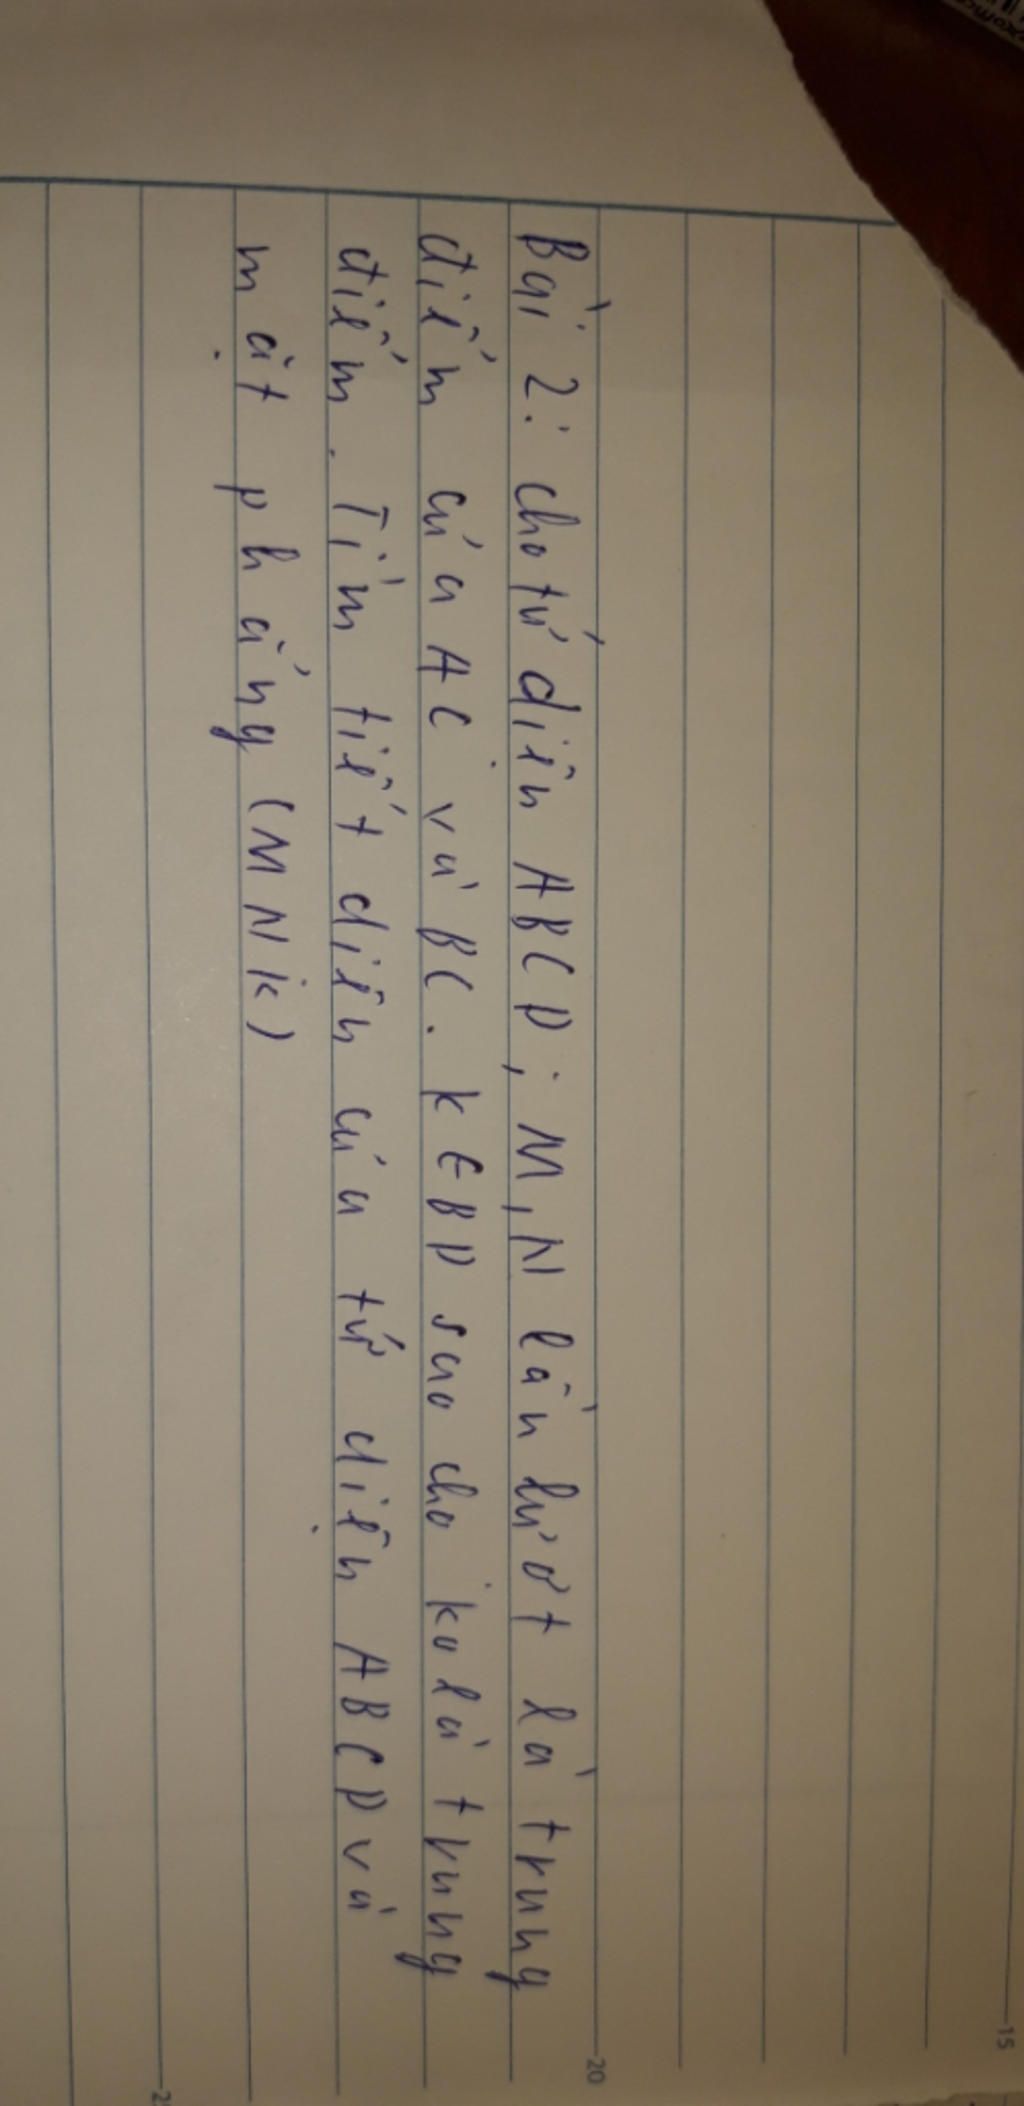 Bài 2: cho tứ diện ABCD; M, N lần lượt là trung
điểm của AC và BC. k ∈ BD sao cho k o là trung
điểm. Tìm tiết diện của tứ diện ABCD và
mặt phẳng (MNk)
15
20